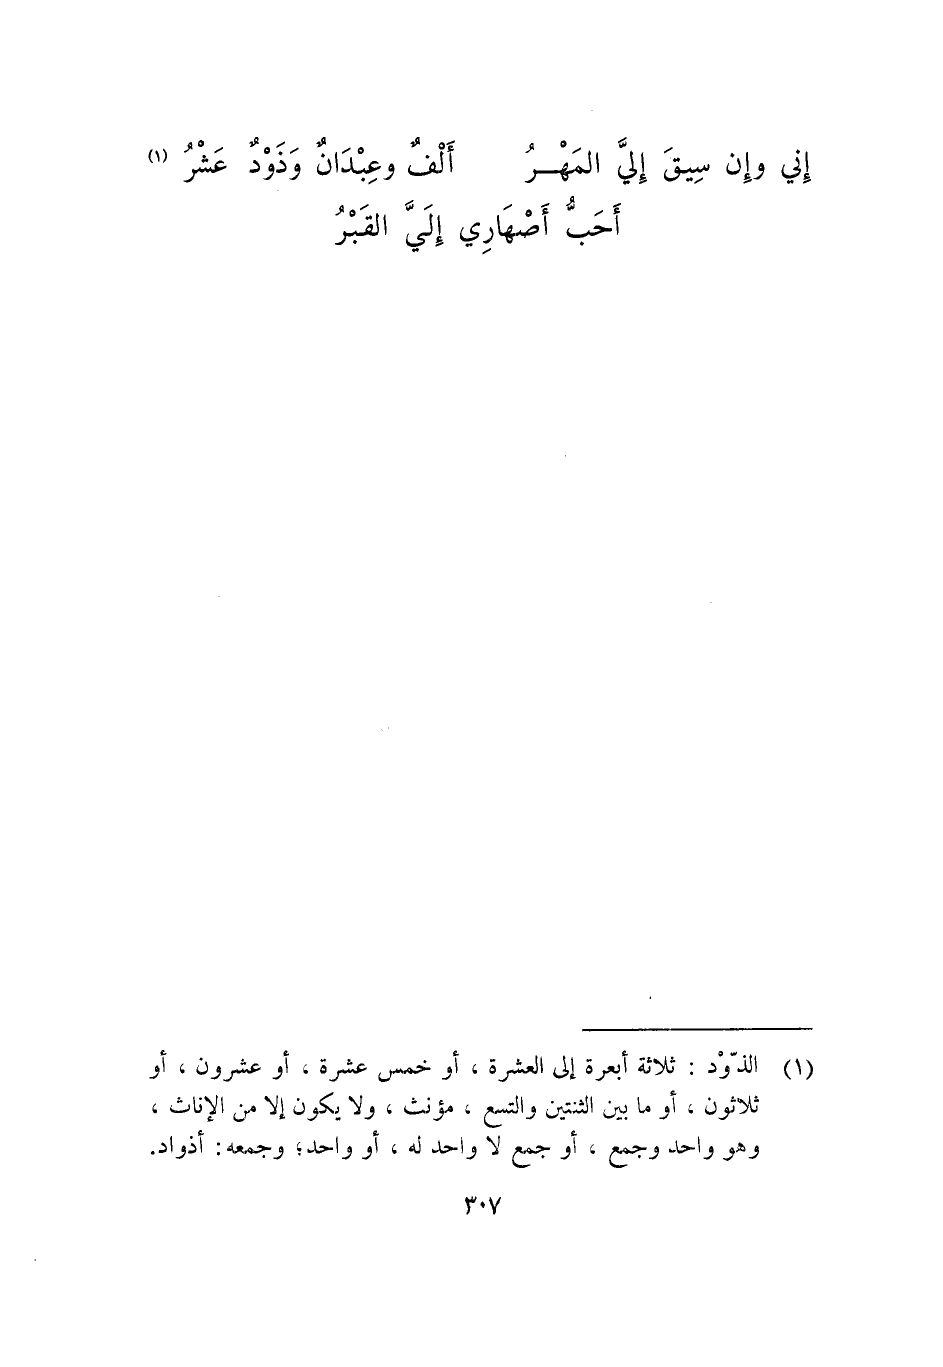 إِني وإن سِيقَ إِليَّ المَهْـــرُ أَلْفٌ وعِبْدَانٌ وَذَوْدٌ عَشْرُ (١)
أَحَبُّ أَصْهَارِي إِلَيَّ القَبْرُ
(١) الذّوْد : ثلاثة أبعرة إلى العشرة ، أو خمس عشرة ، أو عشرون ، أو
ثلاثون ، أو ما بين الثنتين والتسع ، مؤنث ، ولا يكون إلا من الإناث ،
وهو واحد وجمع ، أو جمع لا واحد له ، أو واحد؛ وجمعه: أذواد.
٣٠٧